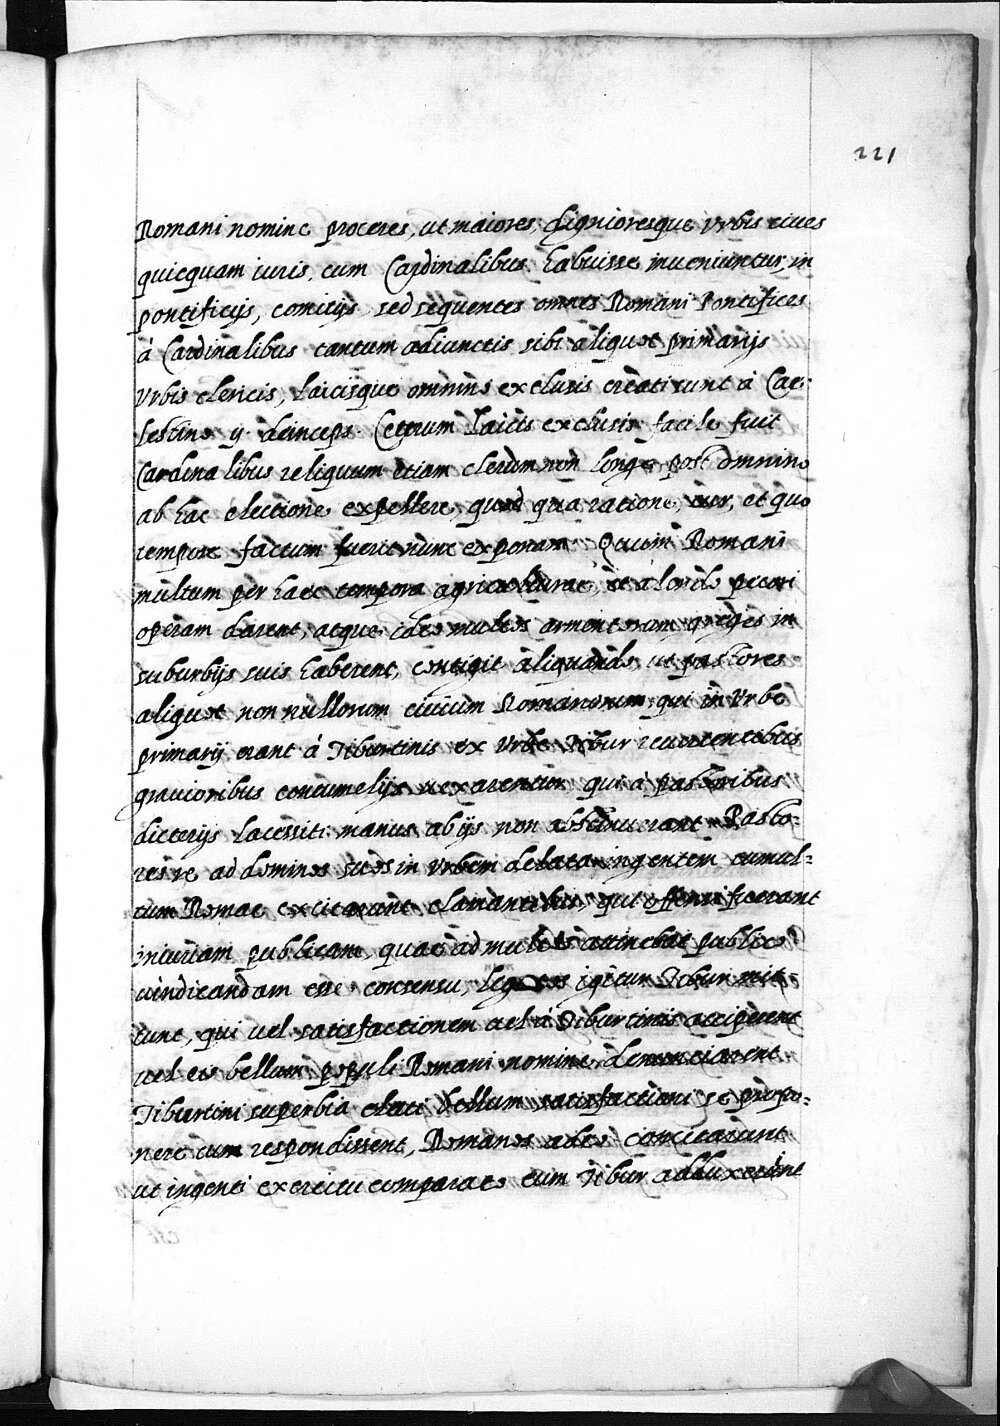 221
Romani nomine proceres, ut maiores, dignioresque Vrbis ciues
quicquam iuris, cum Cardinalibus habuisse inueniuntur, in
pontificijs, comitijs sed sequentes omnes Romani Pontifices
á Cardinalibus tantum adiunctis sibi aliquot primarijs
Vrbis clericis, laicisque omnino exclusis creati sunt á Cae-
lestino ij. deinceps. Ceterum laicis exclusis facile fuit
Cardinalibus reliquum etiam clerum non longe post omnino
ab hac electione expellere, quod qua ratione, cur, et quo
tempore factum fuerit nunc exponam. Quum Romani
multum per haec tempora agriculturae, et alendo pecori
operam darent, atque ideo multos armentorum greges in
suburbijs suis haberent, contigit aliquando ut pastores
aliquot non nullorum ciuium Romanorum qui in Vrbe
primarij erant á Tiburtinis ex Vrbe Tibur reuertentibus
grauioribus contumelijs uexarentur qui á pastoribus
dicterijs lacessiti manus ab ijs non abstinuerant Pasto-
res re ad dominos suos in Vrbem delata ingentem tumul=
tum Romae excitarunt clamantibus, qui offensi fuerant
iniuriam publicam, quae ad multos attinebat publico
uindicandam esse consensu, legatos igitur Tibur mit
tunt, qui uel satisfactionem uel á Tiburtinis acciperent
uel eis bellum populi Romani nomine denunciarent
Tiburtini superbia elati bellum satisfactioni se propo=
nere cum respondissent, Romanos adeo concitarunt
ut ingenti exercitu comparato eum Tibur adduxerint